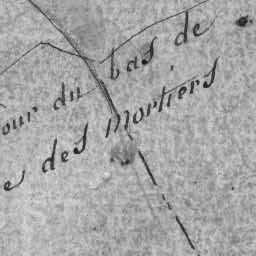 our du bas de
e des Mortiers